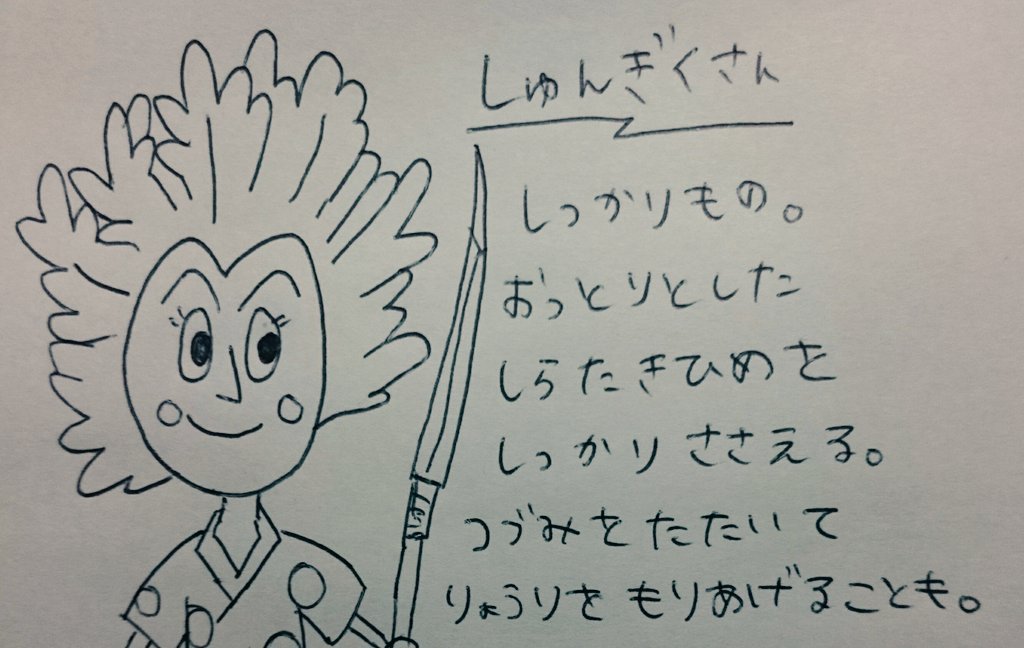 しゅんぎくさん
しっかりもの。
おっとりとした
しらたきひめを
しっかりささえる。
つづみをたたいて
りょうりをもりあげることも。